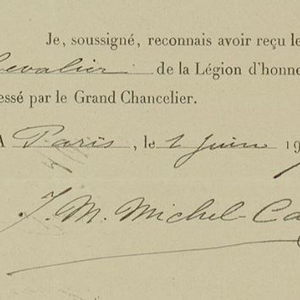 Je, soussigné, reconnais avoir reçu le
Chevalier de la Légion d'honne
essé par le Grand Chancelier.
A Paris, le 1 Juin 19
J. M. Michel-Ca